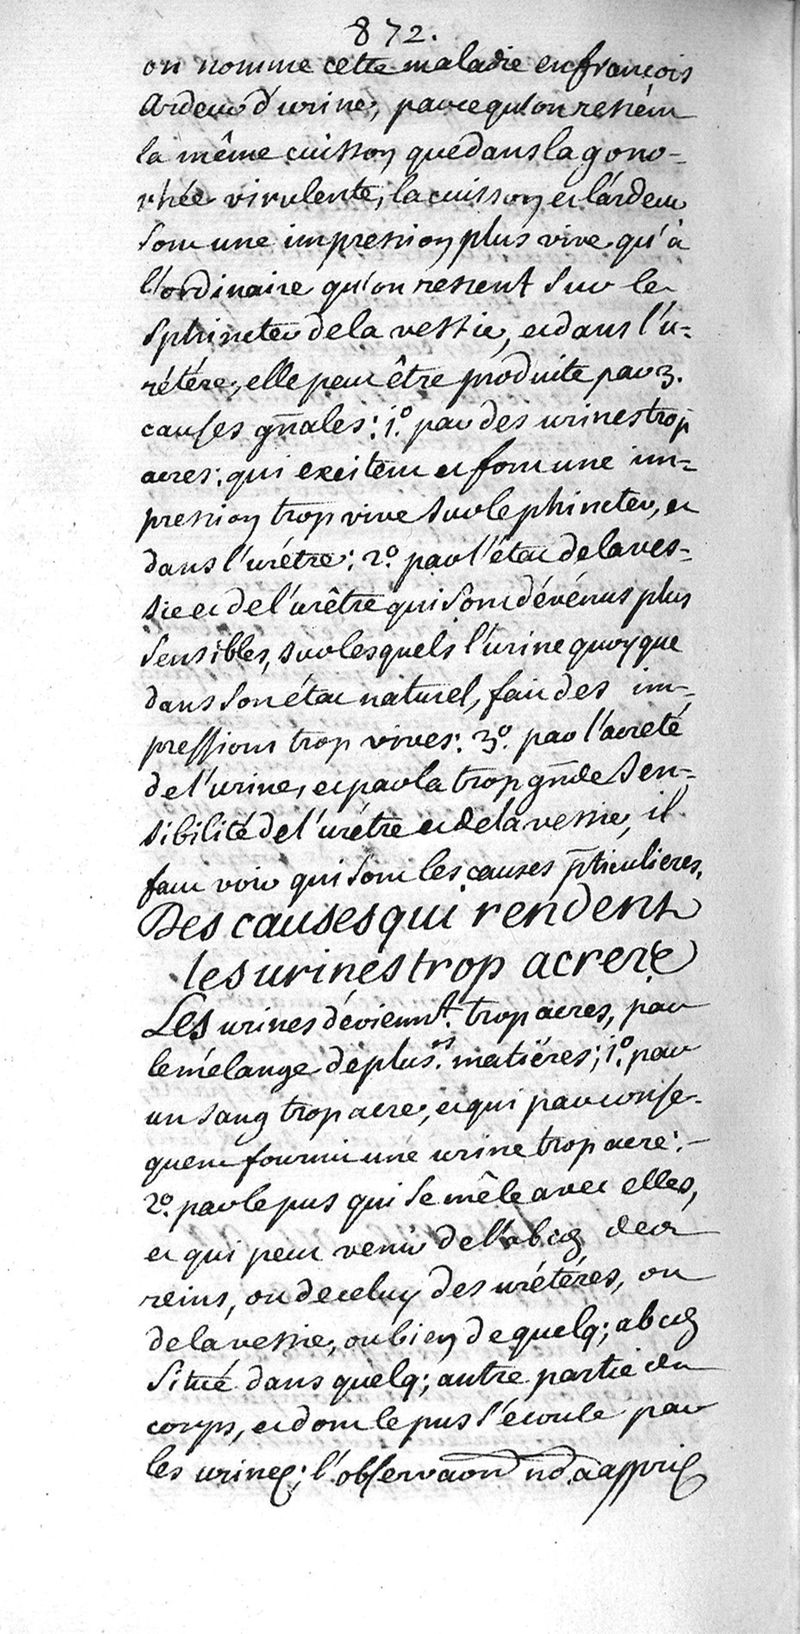 872.
on nomme cette maladie en françois
Ardeur d'urine, parce qu'on ressent
la même cuisson que dans la gono-
rhée virulente, la cuisson et l'ardeur
sont une impression plus vive qu'à
l'ordinaire qu'on ressent sur le
sphincter de la vessie, et dans l'u-
rétére, elle peut être produite par 3.
causes gñales: 1.º par des urines trop
acres; qui excitent et font une im-
pression trop vive sur le sphincter, et
dans l'urétre: 2.º par l'état de la ves-
sie et de l'urêtre qui sont dévénus plus
sensibles, sur lesquels l'urine quoyque
dans son état naturel, fait des im-
pressions trop vives: 3.º par l'acreté
de l'urine, et par la trop gñde sen-
sibilité de l'urétre et de la vessie, il
faut voir qui sont les causes p̄ticulieres,
Des causes qui rendent
les urines trop acrere
Les urines déviennt. trop acres, par
le mélange de plusrs. matiéres; 1.º par
un sang trop acre, et qui par conse-
quent fournit une urine trop acre:
2.º par le pus qui se mêle avec elles,
et qui peut venir de l'abcés des
reins, ou de celuy des urétéres, ou
de la vessie, ou bien de quelq; abcés
situé dans quelq; autre partie du
corps, et dont le pus s'écoule par
les urines; l'observaõn nd. a appris